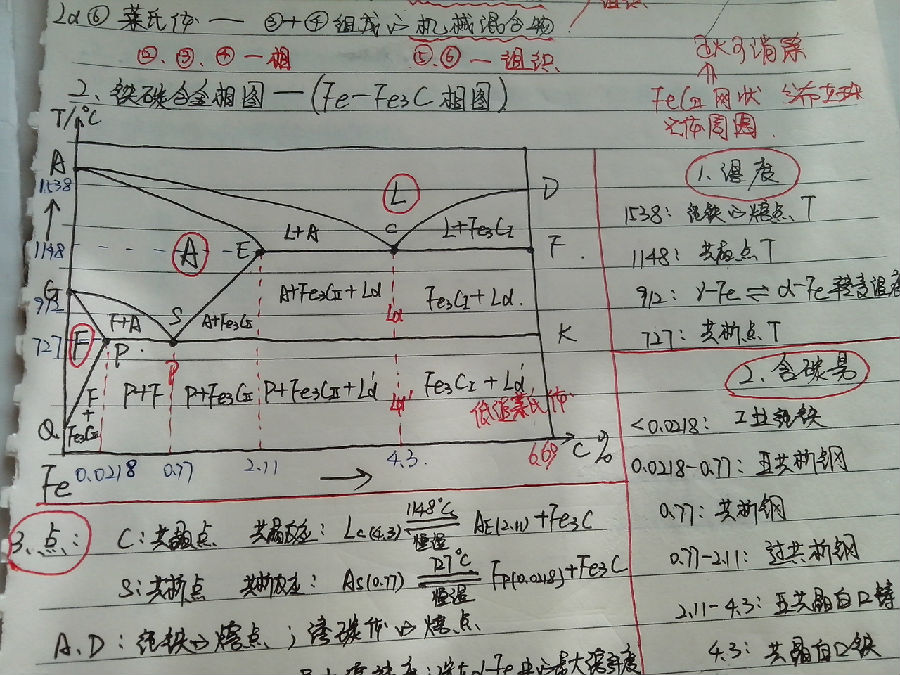 ⑥ 莱氏体 — ③+④组成的机械混合物
②、③、④—相 ⑤、⑥—组织
可消除
⇑
Fe₃CⅡ 网状
2、铁碳合金相图—(Fe-Fe₃C相图)
T/℃
A
1538
1148
G
912
727
Q
L
D
L+A
C
L+Fe₃CⅠ
A
E
F
A+Fe₃CⅡ+Ld
Ld
Fe₃CⅠ+Ld
F+A
S
A+Fe₃CⅡ
F
P
P
K
F+Fe₃CⅢ
P+F
P+Fe₃CⅡ
P+Fe₃CⅡ+Ld'
Ld'
Fe₃CⅠ+Ld'
低温莱氏体
Fe 0.0218 0.77 2.11 → 4.3 6.69 C%
1.温度
1538: 纯铁的熔点T
1148: 共晶点T
912: γ-Fe⇌α-Fe转变温度
727: 共析点T
2.含碳量
<0.0218: 工业纯铁
0.0218-0.77: 亚共析钢
0.77: 共析钢
0.77-2.11: 过共析钢
2.11-4.3: 亚共晶白口铸
4.3: 共晶白口铁
3.点:
C:共晶点 共晶反应: Lc(4.3) 1148℃ 恒温 AE(2.11)+Fe₃C
S:共析点 共析反应: As(0.77) 727℃ 恒温 Fp(0.0218)+Fe₃C
A、D:纯铁的熔点;渗碳体的熔点
α-Fe中的最大溶解度